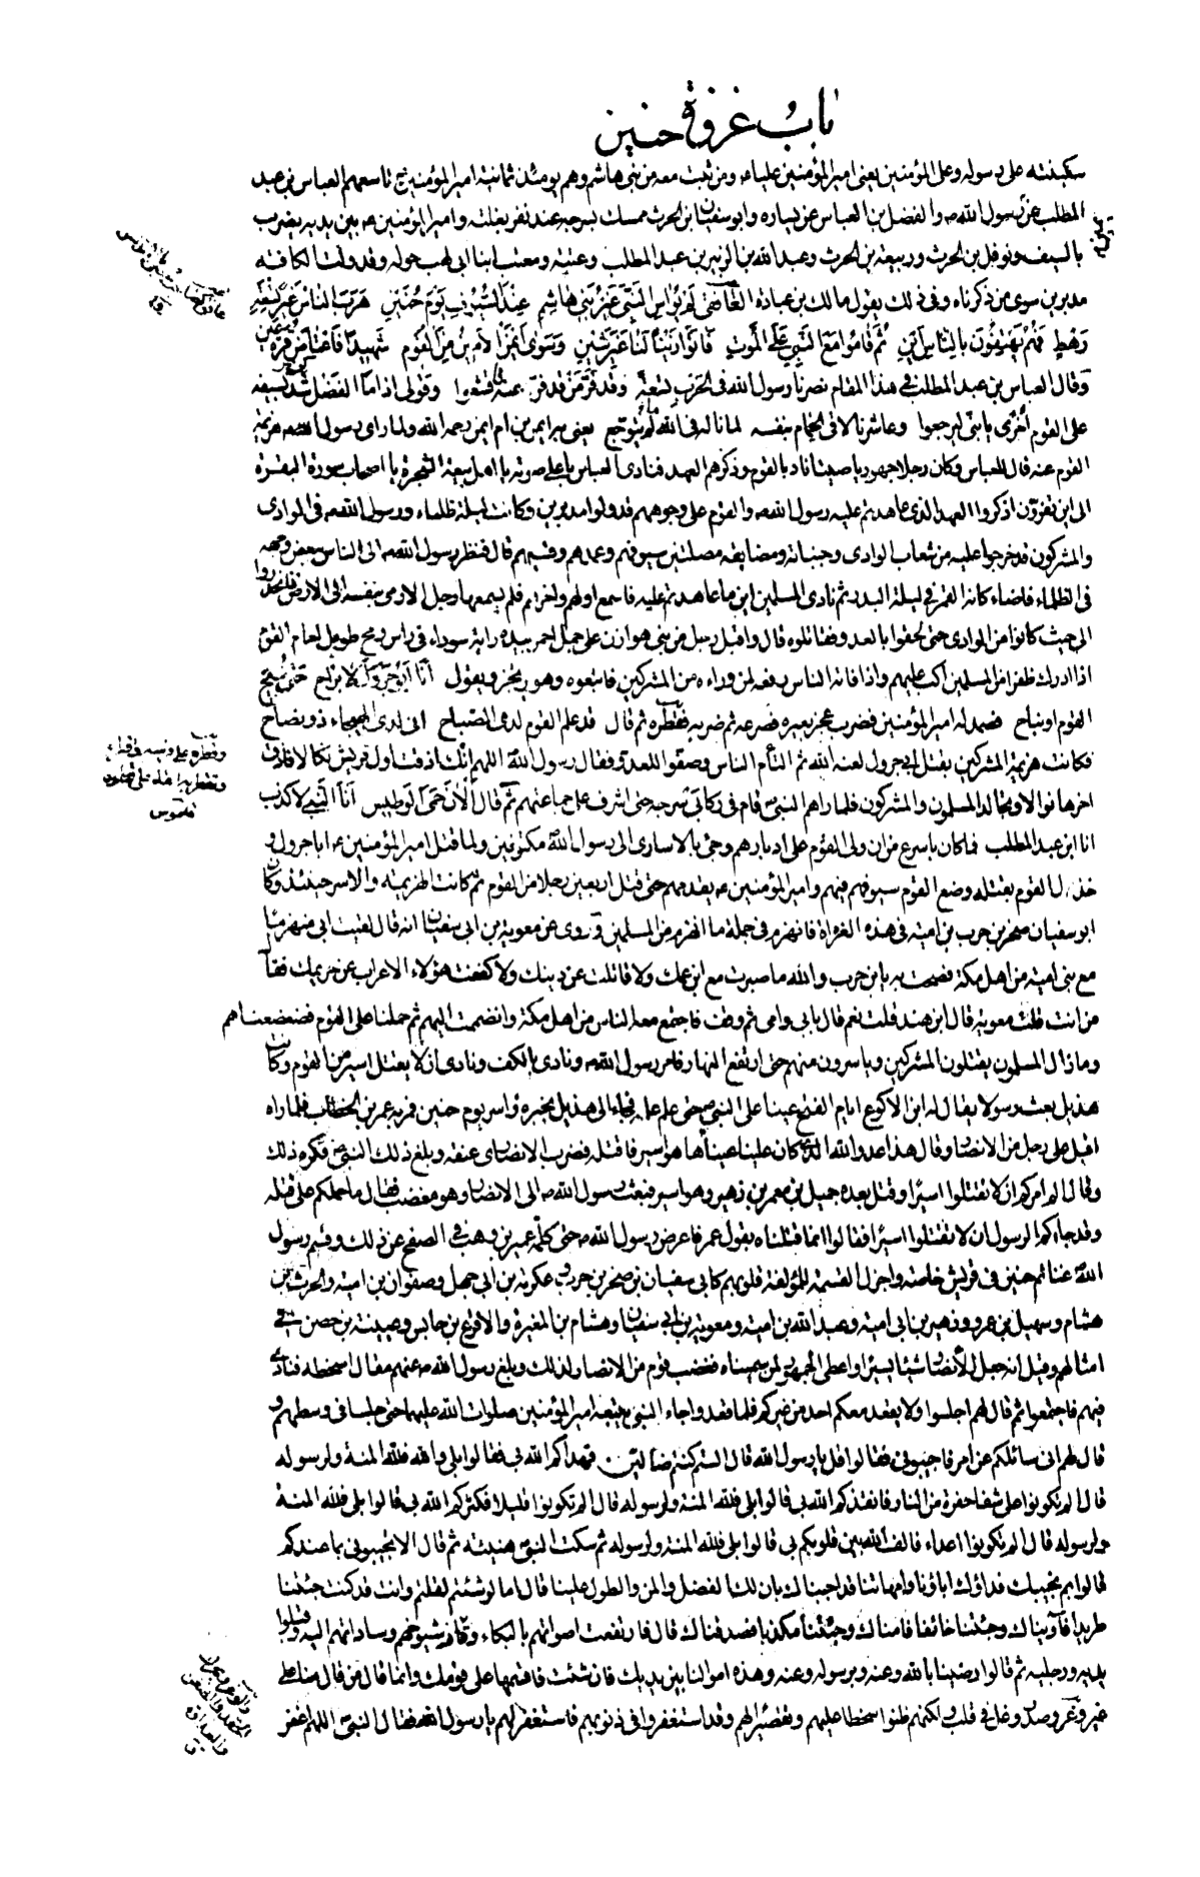 باب غزوة حنين
سكينته على رسوله وعلى المؤمنين يعني امير المؤمنين عليا ع ومن ثبت معه من بني هاشم وهم يومئذ ثمانية امير المؤمنين ع تاسعهم العباس بن عبد
المطلب عن رسول الله ص والفضل بن العباس عن يساره وابو سفيان ابن الحرث ممسك بسرجه عند نفر بغلته وامير المؤمنين ع بين يديه يضرب
بالسيف ونوفل بن الحرث وربيعة بن الحرث وعبد الله بن الزبير بن عبد المطلب وعتبة ومعتب ابنا ابي لهب حوله وقد ولت الكافة
مدبرين سوى من ذكرناه وفي ذلك يقول مالك بن عبادة الغافقي لم يواس النبي غير بني هاشم عند السيوف يوم حنين هرب الناس غير تسعة
رهط فهم يهتفون بالناس اين ثم قاموا مع النبي على الموت فآتوا زينا لنا غير شين وسوى ايمن الامين من القوم شهيدا فاعتاض قرة عين
وقال العباس بن عبد المطلب في هذا المقام نصرنا رسول الله في الحرب تسعة وقد فر من قد فر عنه فاقشعوا وقولي اذا ما الفضل شد بسيفه
على القوم اخرى يا بني ليرجعوا وعاشرنا لاقى الحمام بنفسه لما ناله في الله لا يتوجع يعني به ايمن بن ام ايمن رحمه الله ولما رأى رسول الله ص هزيمة
القوم عنه قال للعباس وكان رجلا جهوريا صيتا ناد بالقوم وذكرهم العهد فنادى العباس باعلى صوته يا اهل بيعة الشجرة يا اصحاب سورة البقرة
الى اين تفرون اذكروا العهد الذي عاهدتم عليه رسول الله ص والقوم على وجوههم قد ولوا مدبرين وكانت ليلة ظلماء ورسول الله ص في الوادى
والمشركون قد خرجوا عليه من شعاب الوادى وجنباته ومضايقه مصلتين سيوفهم وعمدهم وقسيهم قال فنظر رسول الله ص الى الناس ببعض وجهه
في الظلماء فاضاء كانه القمر في ليلة البدر ثم نادى المسلمين اين ما عاهدتم عليه فاسمع اولهم واخرهم فلم يسمعها رجل الا رمى بنفسه الى الارض فانحدروا
الى حيث كانوا من الوادى حتى لحقوا بالعدو فقاتلوه قال واقبل رجل من بني هوازن على جمل احمر بيده راية سوداء في راس رمح طويل امام القوم
اذا ادرك ظفرا من المسلمين اكب عليهم واذا فاته الناس رفعه لمن وراءه من المشركين فاتبعوه وهو يرتجز ويقول انا ابو جرول لا براح حتى نبيح
القوم او نباح فصمد له امير المؤمنين فضرب عجز بعيره فصرعه ثم ضربه فقطره ثم قال قد علم القوم لدى الصباح اني لدى الهيجاء ذو نصاح
فكانت هزيمة المشركين بقتل ابي جرول لعنه الله ثم التأم الناس وصفوا للعدو فقال رسول الله اللهم انك اذقت اول قريش نكالا فاذق
اخرها نوالا وتجالد المسلمون والمشركون فلما راهم النبي ص قام في ركابي سرجه حتى اشرف على جماعتهم ثم قال الآن حمى الوطيس انا النبي لا كذب
انا ابن عبد المطلب فما كان باسرع من ان ولى القوم على ادبارهم وجيء بالاسارى الى رسول الله مكتوفين ولما قتل امير المؤمنين ع ابا جرول و
خذل القوم بقتله وضع القوم سيوفهم فيهم وامير المؤمنين ع يقدمهم حتى قتل اربعين رجلا من القوم ثم كانت الهزيمة والاسر حينئذ وكان
ابو سفيان صخر بن حرب بن امية في هذه الغزاة فانهزم في جملة ما انهزم من المسلمين وروى عن معوية بن ابي سفيان انه قال لقيت ابي منهزما
مع بني امية من اهل مكة فصحت به يا بن حرب والله ما صبرت مع ابن عمك ولا قاتلت عن دينك ولا كففت هؤلاء الاعراب عن حريمك فقال
من انت قلت معوية قال ابن هند قلت نعم قال بابي وامي ثم وقف فاجتمع معه الناس من اهل مكة وانضممت اليهم ثم حملنا على القوم فضعضعناهم
وما زال المسلمون يقتلون المشركين وياسرون منهم حتى ارتفع النهار فامر رسول الله ص ونادى بالكف ونادى ان لا يقتل اسير من القوم وكانت
هذيل بعث رسولا يقال له ابن الاكوع ايام الفتح عينا على النبي ص حتى علم علمه فجاء الى هذيل بخبره واسر يوم حنين فمر به عمر بن الخطاب فلما راه
اقبل على رجل من الانصار وقال هذا عدو الله الذي كان علينا عينا ها هو اسير فاقتله فضرب الانصاري عنقه وبلغ ذلك النبي ص فكره ذلك
وقال الم امركم ان لا تقتلوا اسيرا وقتل بعده جميل بن معمر بن زهير وهو اسير فبعث رسول الله ص الى الانصار وهو مغضب فقال ما حملكم على قتله
وقد جاءكم الرسول ان لا تقتلوا اسيرا فقالوا انما قتلناه بقول عمر فاعرض رسول الله ص حتى كلمه عمير بن وهب في الصفح عن ذلك وقسم رسول
الله غنائم حنين في قريش خاصة واجزل القسمة للمؤلفة قلوبهم كابي سفيان بن صخر بن حرب وعكرمة بن ابي جهل وصفوان بن امية والحرث بن
هشام وسهيل بن عمرو وزهير بن ابي امية وعبد الله بن امية ومعوية بن ابي سفيان وهشام بن المغيرة والاقرع بن حابس وعيينة بن حصن في
امثالهم وقيل انه جعل للانصار شيئا يسيرا واعطى الجمهور لمن سميناه فغضب قوم من الانصار لذلك وبلغ رسول الله ص عنهم مقال اسخطه فنادى
فيهم فاجتمعوا ثم قال لهم اجلسوا ولا يقعد معكم احد من غيركم فلما قعدوا جاء النبي يتبعه امير المؤمنين صلوات الله عليهما حتى جلسا في وسطهم و
قال لهم اني سائلكم عن امر فاجيبوني فقالوا قل يا رسول الله قال الستم كنتم ضالين فهداكم الله بي فقالوا بلى والله فلله المنة ولرسوله
قال الم تكونوا على شفا حفرة من النار فانقذكم الله بي قالوا بلى فلله المنة ولرسوله قال الم تكونوا قليلا فكثركم الله بي قالوا بلى فلله المنة
ولرسوله قال الم تكونوا اعداء فالف الله بين قلوبكم بي قالوا بلى فلله المنة ولرسوله ثم سكت النبي هنيئة ثم قال الا تجيبوني بما عندكم
قالوا بم نجيبك فداؤك اباؤنا وامهاتنا قد اجبناك بان لك الفضل والمن والطول علينا قال اما لو شئتم لقلتم وانت قد كنت جئتنا
طريدا فآويناك وجئتنا خائفا فامناك وجئتنا مكذبا فصدقناك قال فارتفعت اصواتهم بالبكاء وقام شيوخهم وساداتهم اليه وقبلوا
يديه ورجليه ثم قالوا رضينا بالله وعنه وبرسوله وعنه وهذه اموالنا بين يديك فان شئت فاقسمها على قومك وانما قال من قال منا على
غير وغر صدر وغل في قلب ولكنهم ظنوا سخطا عليهم وتقصيرا لهم وقد استغفروا في ذنوبهم فاستغفر لهم يا رسول الله فقال النبي اللهم اغفر
وقطره على
قاموس